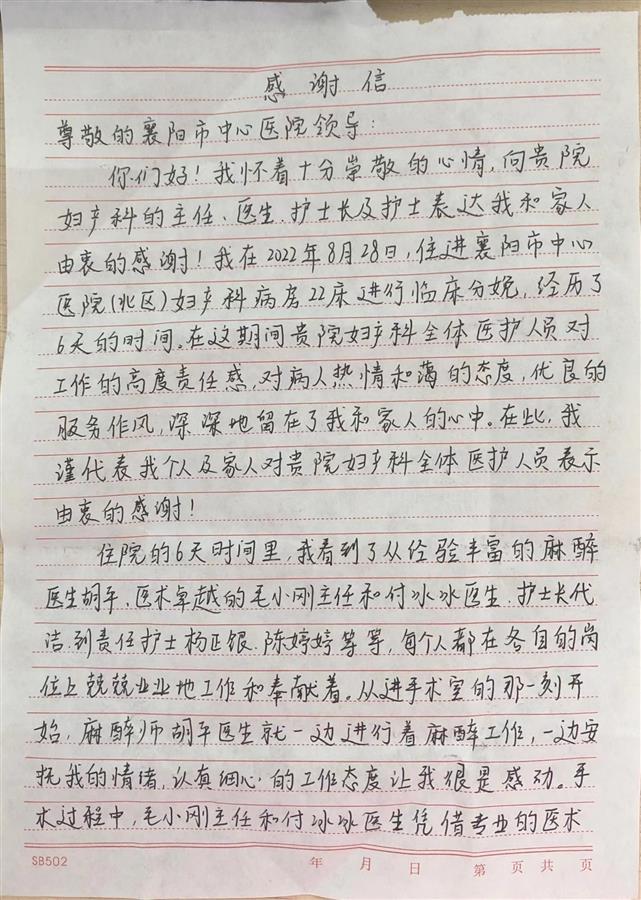 感谢信
尊敬的襄阳市中心医院领导:
你们好!我怀着十分崇敬的心情,向贵院
妇产科的主任、医生、护士长及护士表达我和家人
由衷的感谢!我在2022年8月28日,住进襄阳市中心
医院(北区)妇产科病房22床进行临床分娩,经历了
6天的时间。在这期间贵院妇产科全体医护人员对
工作的高度责任感,对病人热情和蔼的态度,优良的
服务作风,深深地留在了我和家人的心中。在此,我
谨代表我个人及家人对贵院妇产科全体医护人员表示
由衷的感谢!
住院的6天时间里,我看到了从经验丰富的麻醉
医生胡平、医术卓越的毛小刚主任和付冰冰医生、护士长代
洁、到责任护士杨正银、陈婷婷等等,每个人都在各自的岗
位上兢兢业业地工作和奉献着。从进手术室的那一刻开
始,麻醉师胡平医生就一边进行着麻醉工作,一边安
抚我的情绪,认真细心的工作态度让我很是感动。手
术过程中,毛小刚主任和付冰冰医生凭借专业的医术
SB502 年 月 日 第 页 共 页